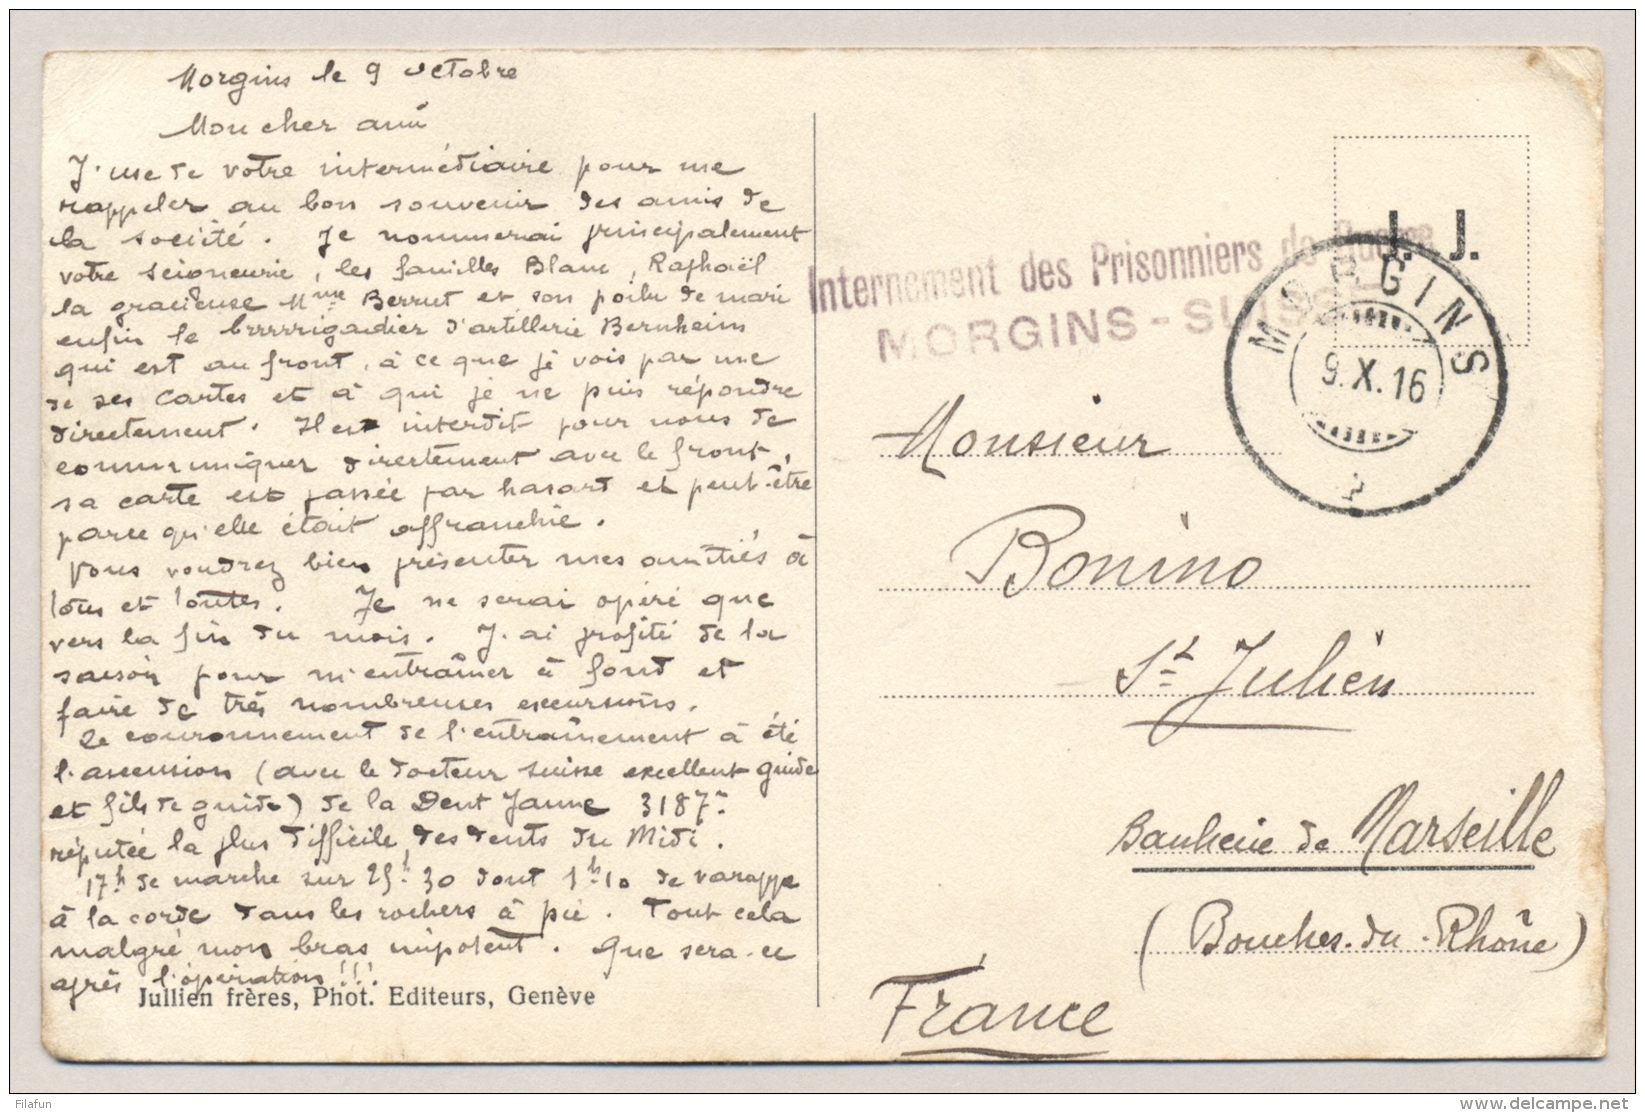 Morgins le 9 octobre
Mon cher ami
J'use de votre intermédiaire pour me
rappeler au bon souvenir des amis de
la société. Je nommerai principalement
votre seigneurie, les familles Blanc, Raphaël
la gracieuse Mme Berrut et son poilu de mari
enfin le brrrrrigadier d'artillerie Bernheim
qui est au front, à ce que je vois par une
de ses cartes et à qui je ne puis répondre
directement. Il est interdit pour nous de
communiquer directement avec le front,
sa carte est passée par hasard et peut-être
parce qu'elle était affranchie.
Vous voudrez bien présenter mes amitiés à
tous et toutes. Je ne serai opéré que
vers la fin du mois. J'ai profité de la
saison pour m'entraîner à fond et
faire de très nombreuses excursions.
Le couronnement de l'entraînement a été
l'ascension (avec le docteur suisse excellent guide
et fils de guide) de la Dent Jaune 3187m
réputée la plus difficile des dents du Midi.
17h de marche sur 25h 30 dont 1h10 de varappe
à la corde dans les rochers à pic. Tout cela
malgré mon bras impotent. Que sera-ce
après l'opération!!!
Jullien frères, Phot. Editeurs, Genève
I. J.
Internement des Prisonniers de Guerre
MORGINS - SUISSE
MORGINS
9.X.16
Monsieur
Bonino
St Julien
Banlieue de Marseille
(Bouches-du-Rhône)
France
Filafun
www.delcampe.net